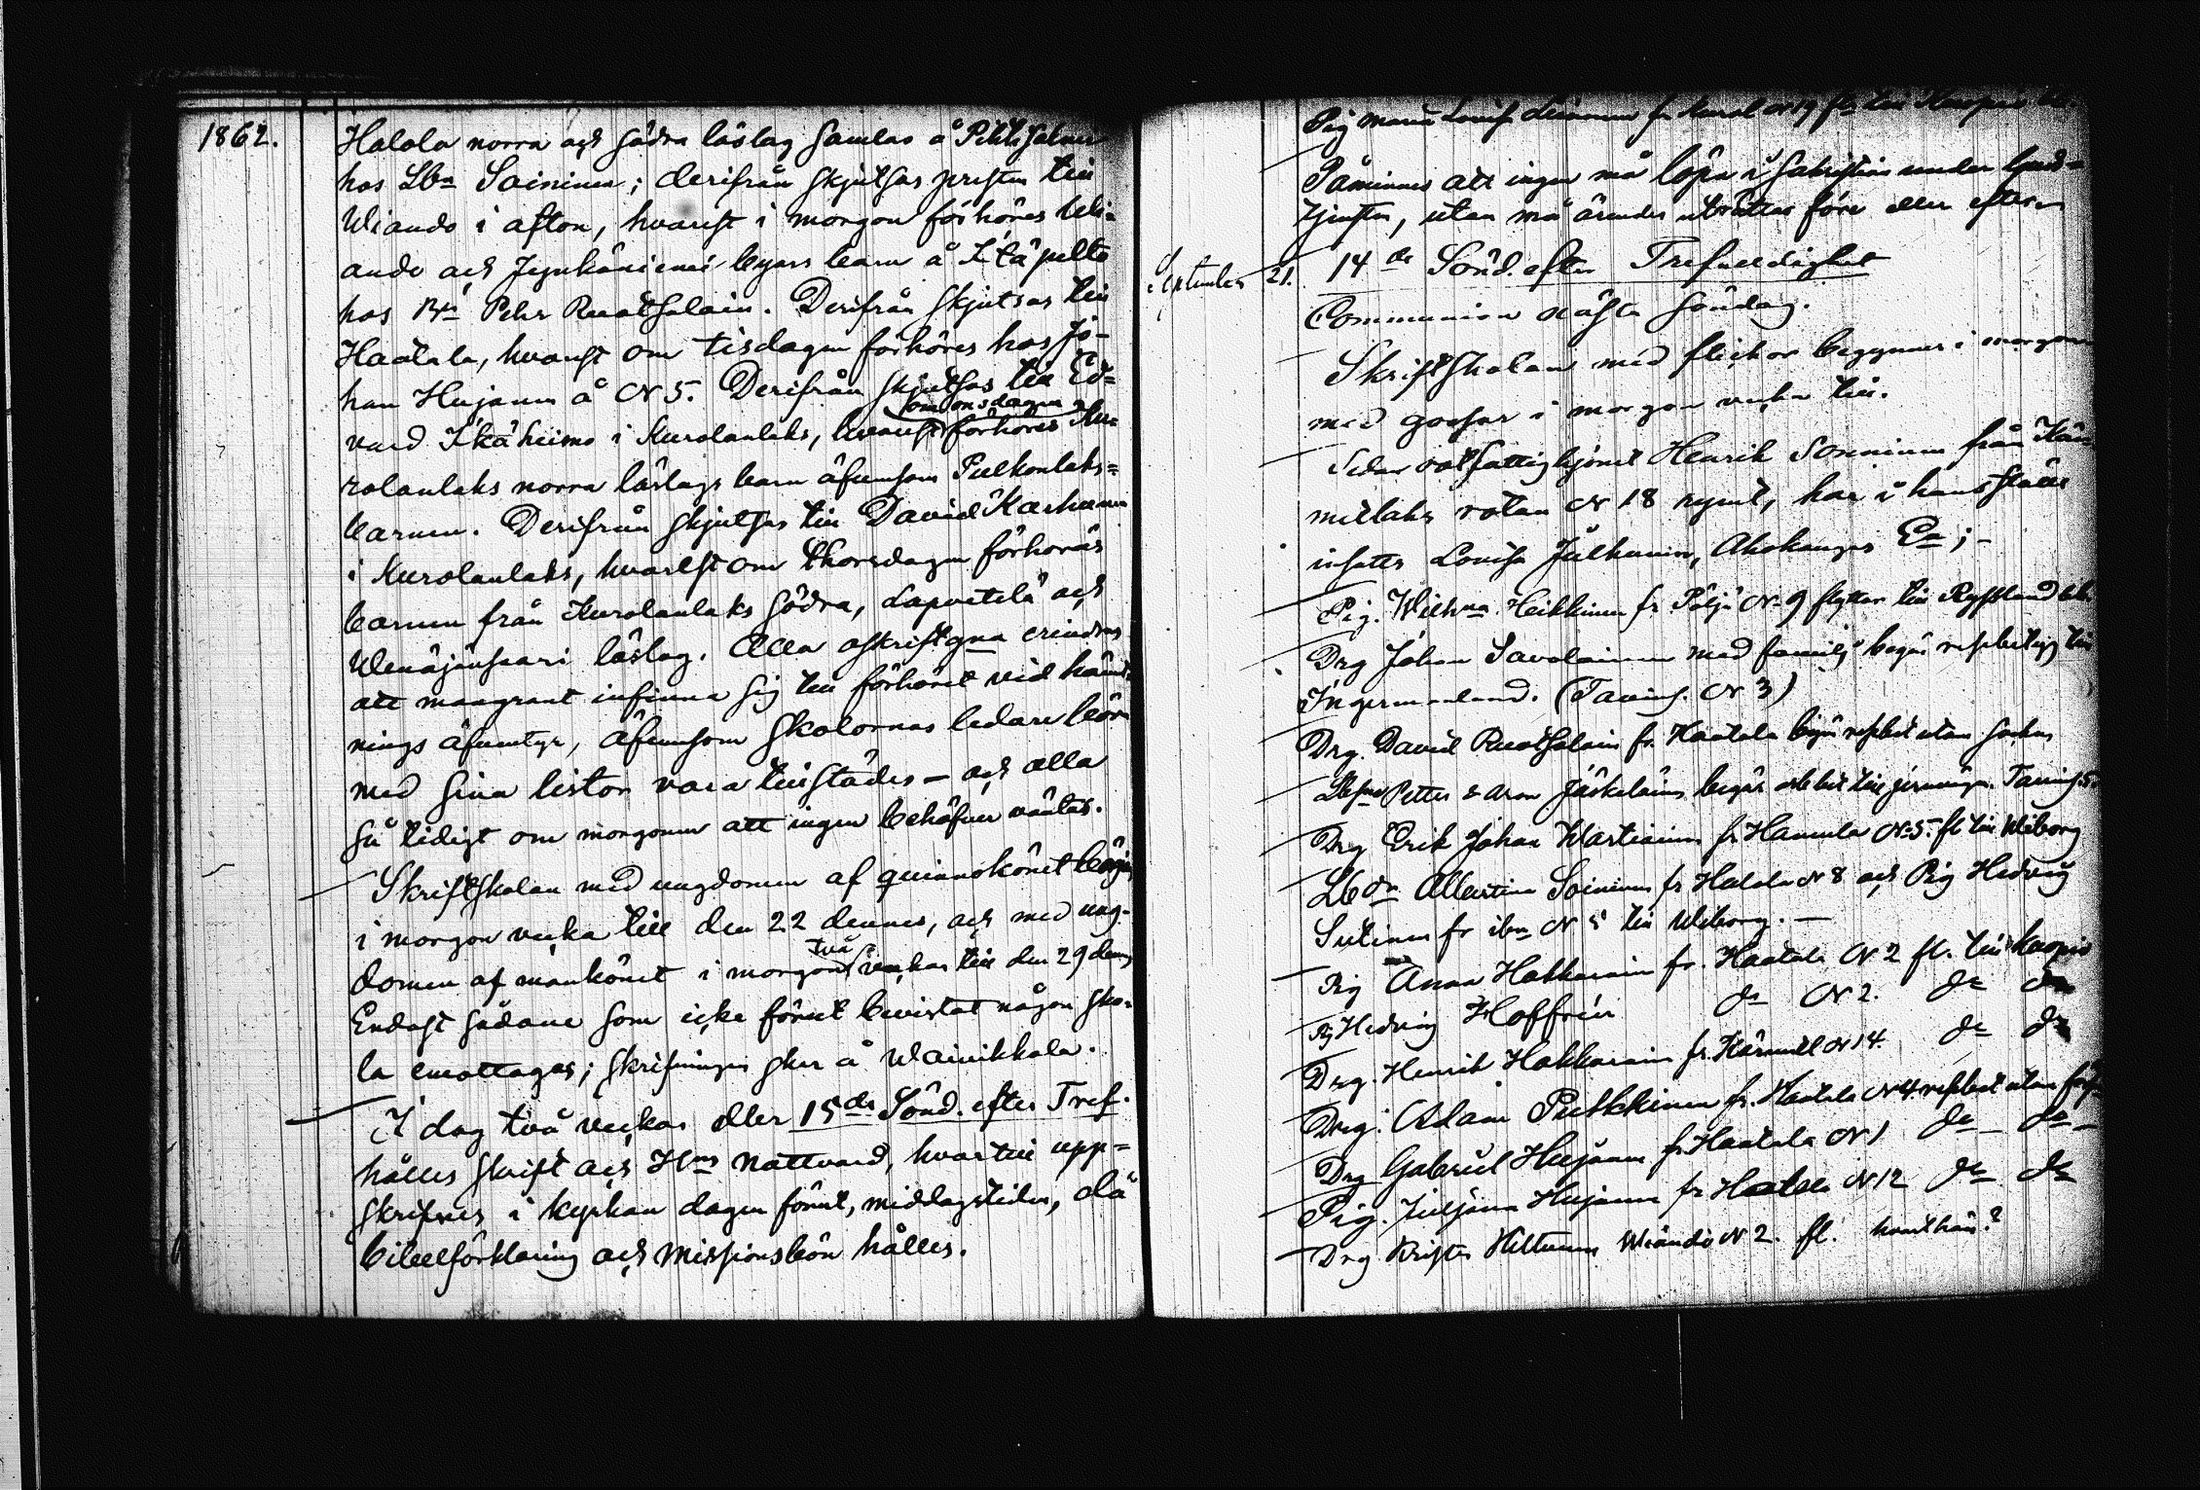 1862.
Halola norra och södra läslag samlas å Pitkäsalmi
hos Lbn Soininen; derifrån skjutsas presten till
Wiando i afton, hvarest i morgon förhöres Wi-
ando och Jynkäniemi byars barn å Itäpelto
hos Bn Pehr Ruotsalain. Derifrån skjutsas till
Haatala, hvarest om tisdagen förhöres hos Jo-
han Hujanen å N 5. Derifrån skjutsas till Ed-
vard Ikäheimo i Kurolanlaks, hvarest om onsdagen förhöres Ku-
rolanlaks norra läslags barn äfvensom Pulkonlaks-
barnen. Derifrån skjutsas till David Karhunen
i Kurolanlaks, hvarest om thorsdagen förhöras
barnen från Kurolanlaks södra, Lapvetelä och
Wenäjänsaari läslag. Alla afskriftgna erindras
att mangrant infinna sig till förhöret vid
nings äfventyr, äfvensom skolornas ledare böra
med sina listor vara tillstädes — och alla
så tidigt om morgonen att ingen behöfver väntas.
Skriftskolan med ungdomen af qvinnokönet börjas
i morgon vecka till den 22 dennes, och med ung-
domen af mankönet i morgon två veckor till den 29 dens
Endast sådane som icke förut bevistat någon sko-
la emottagas; skrifningen sker å Wainikkala.
I dag två veckor eller 15de Sönd. efter Tref.
hålles skrift och Hns nattvard, hvartill upp-
skrifves i kyrkan dagen förut, middagstiden, då
bibelförklaring och missionsbön hålles.
Pig Maria Lovisa Leinonen fr Kurol N 19 fl till Kuopio
Påminnes att ingen må löpa i sakristian under Guds-
tjensten, utan må ärender uträttas före eller efter
September 21. 14de Sönd. efter Trefaldighet
Communion nästa söndag.
Skriftskolan med flickor begynner i morgon
med gossar i morgon vecka till.
Sedan rotfattighjonet Henrik Sonninen från
rotan N 18 rymt, har i hans ställe
insatts Lovisa Julkunen, Ahokangas En;-
Pig. Wilhna Heikkinen fr Pöljä N 9 flyttar till Ryssland
Drg Johan Savolainen med familj begär till
Ingermanland. (Tavins. N 3)
Drg. David Ruotsalain fr. Haatala begär utan socken
Petter & Aron Jäskeläins begär till Tavins 5.
Drg Erik Johan Wartiainen fr Hamula N 5. fl till Wiborg
Lbdr Albertina Soininen fr Halola N 8 och Pig Hedvig
Sutinen fr ibm N 5 till Wiborg. —
Pig Anna Hakkarain fr. Haatala N 2 fl. till Kuopio
Pg Hedvig Hoffrén do N 2. do do
Drg. Henrik Hakkarain fr. N 14. do do
Drg. Adam Pulkkinen fr. Haatala N 4 utan
Drg Gabriel Hujanen fr Haatala N 1 do — do —
Pig. Juljana Hujanen fr Haatala N 12 do do
Drg Krister Hiltunen Wiando N 2. fl. hvarthän?